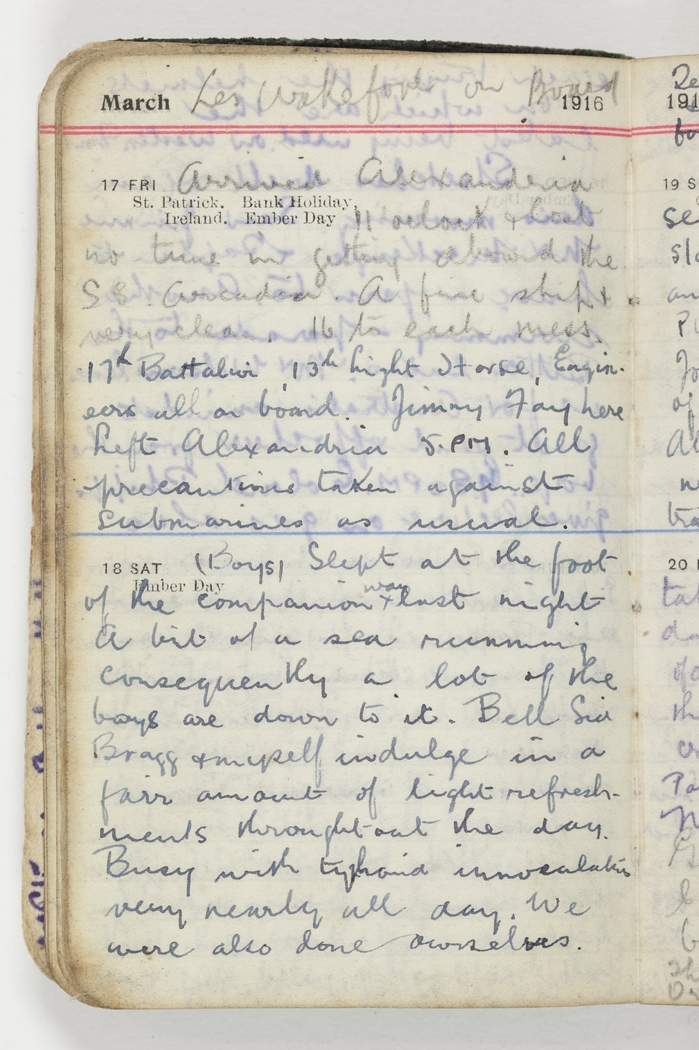 March Les Wakeford on Board 1916
17 FRI Arrived Alexandria
St. Patrick. Bank Holiday,
Ireland. Ember Day 11 oclock & lost
no time in getting aboard the
S S Arcadian. A fine ship &
very clean. 16 to each mess.
17th Battalion 13th Light Horse, Engin-
eers all on board. Jimmy Fay here
Left Alexandria 5. P.M. All
precautions taken against
submarines as usual.
18 SAT (Boys) Slept at the foot
Ember Day
of the companion way last night
A bit of a sea running
consequently a lot of the
boys are down to it. Bell Sid
Bragg & myself indulge in a
fair amount of light refresh-
ments throught out the day.
Busy with typhoid innoculation
very nearly all day. We
were also done ourselves.
19 S
20